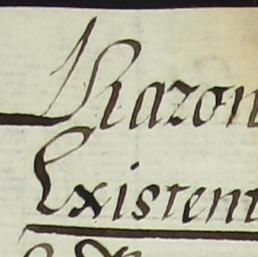 Razon
Existent